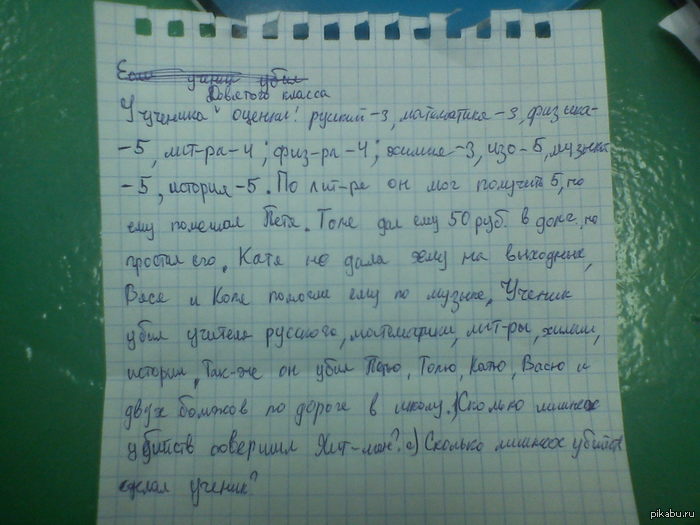 Если ученик убил
Девятого класса
У ученика оценки: русский-3, математика-3, физика-
-5, лит-ра-4; физ-ра-4; химия-3, изо-5, музыка
-5, история-5. По лит-ре он мог получить 5, но
ему помешал Петя. Толе дал ему 50 руб. в долг, но
простил его. Катя не дала ему на выходных,
Вася и Коля помогли ему по музыке. Ученик
убил учителя русского, математики, лит-ры, химии,
истории. Так-же он убил Петю, Толю, Катю, Васю и
двух бомжов по дороге в школу. Сколько лишних
убийств совершил Хит-ман? Сколько лишних убийств
сделал ученик?
pikabu.ru